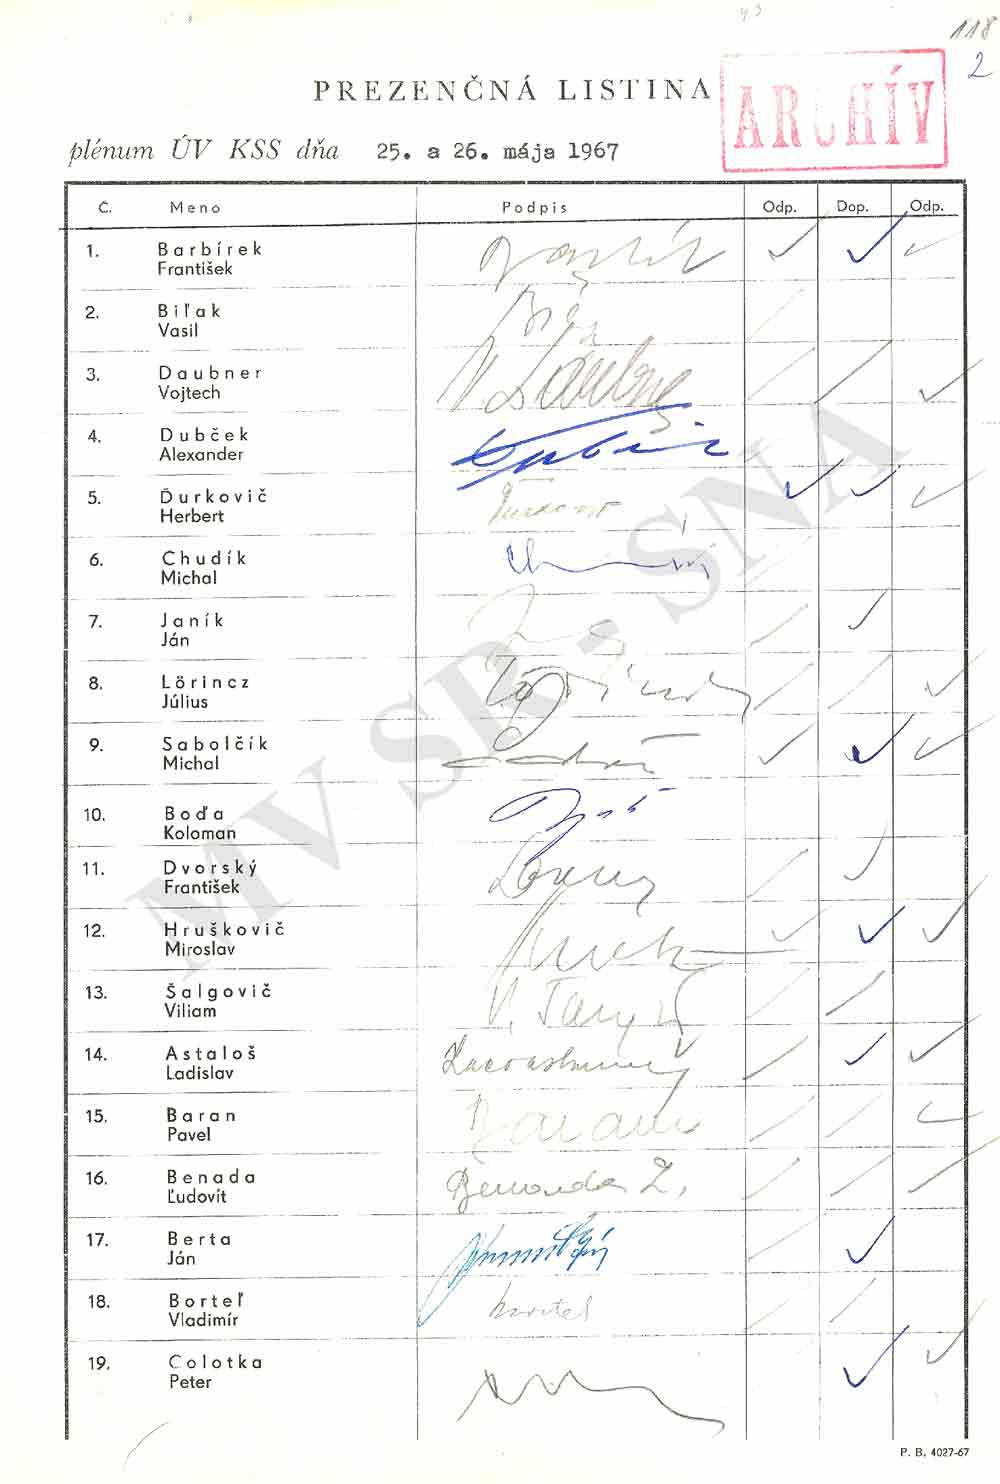 118
2
PREZENČNÁ LISTINA
ARCHÍV
plénum ÚV KSS dňa 25. a 26. mája 1967
Č. Meno Podpis Odp. Dop. Odp.
1. Barbírek
František
2. Biľak
Vasil
3. Daubner
Vojtech
V Daubner
4. Dubček
Alexander
5. Ďurkovič
Herbert
6. Chudík
Michal
7. Janík
Ján
8. Lörincz
Július
9. Sabolčík
Michal
10. Boďa
Koloman
11. Dvorský
František
12. Hruškovič
Miroslav
13. Šalgovič
Viliam
14. Astaloš
Ladislav
15. Baran
Pavel
Baran
16. Benada
Ľudovít
Benada Ľ.
17. Berta
Ján
18. Borteľ
Vladimír
19. Colotka
Peter
MV SR - SNA
P. B. 4027-67